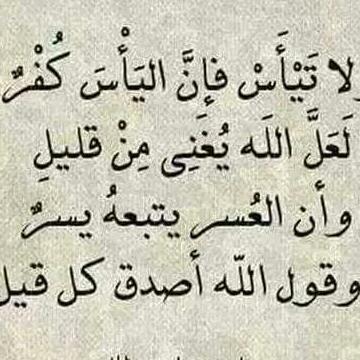 لا تَيْأَسْ فإنَّ اليَأْسَ كُفْرٌ
لَعَلَّ اللَه يُغَنِى مِنْ قليلِ
وأن العُسر يتبعهُ يسرٌ
وقول اللّه أصدق كل قيل